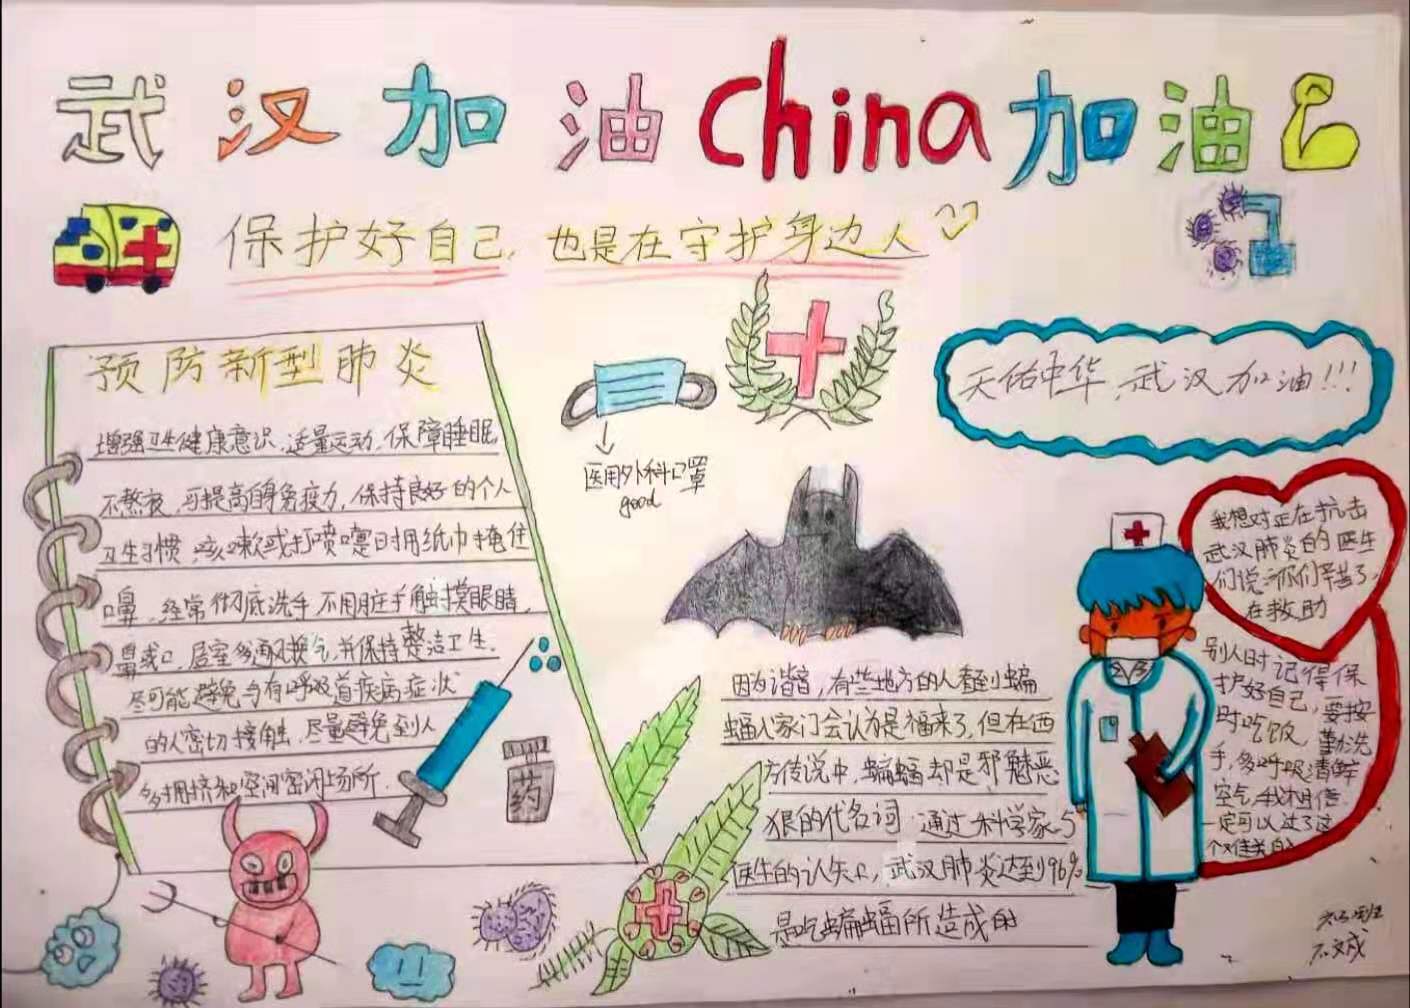 武汉加油China加油
保护好自己,也是在守护身边人
预防新型肺炎
增强卫生健康意识,适量运动,保障睡眠
不熬夜,可提高自身免疫力,保持良好的个人
卫生习惯,咳嗽或打喷嚏时用纸巾掩住
口鼻,经常彻底洗手,不用脏手触摸眼睛,
鼻或口,居室多通风换气,并保持整洁卫生.
尽可能避免与有呼吸道疾病症状
的人密切接触,尽量避免到人
多拥挤和空间密闭场所.
药
医用外科口罩
good
天佑中华,武汉加油!!!
因为谐音,有些地方的人看到蝙
蝠人家们会认为是福来了,但在西
方传说中,蝙蝠却是邪魅恶
狠的代名词,通过科学家与
医生的认知,武汉肺炎达到96%
是吃蝙蝠所造成的
我想对正在抗击
武汉肺炎的医生
们说:你们辛苦了,
在救助
别人时记得保
护好自己,要按
时吃饭,勤洗
手,多呼吸清鲜
空气,我相信
一定可以过了这
个难关的